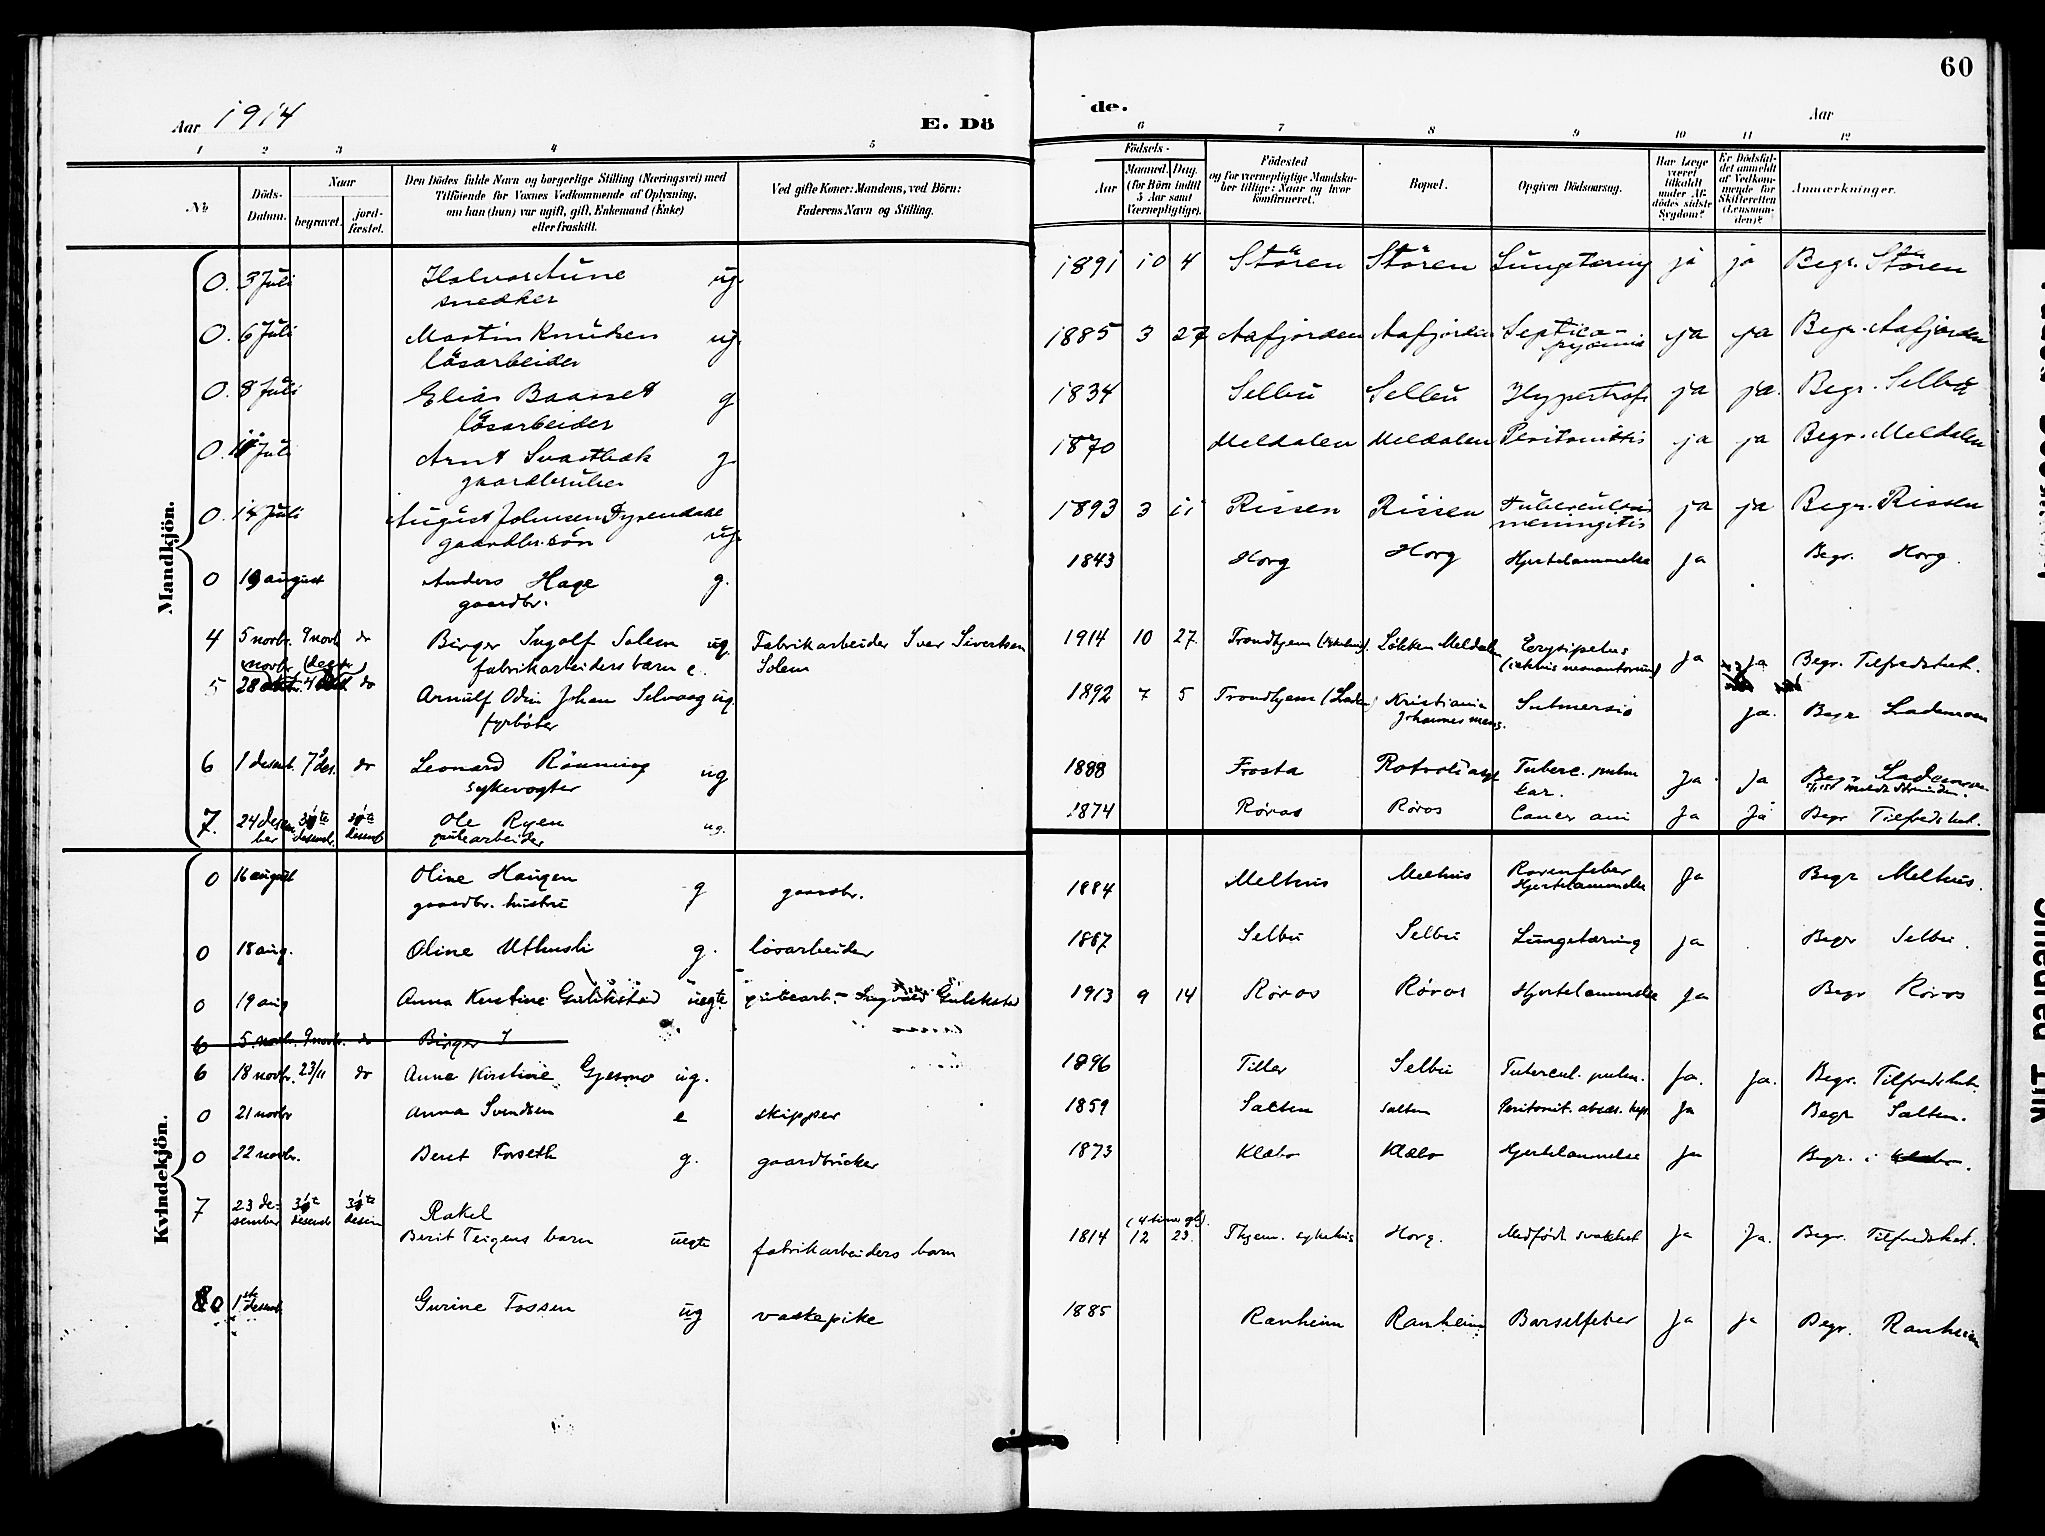 60
Aar 1914
E. Dö
de.
Aar
1 2 3 4 5 6 7 8 9 10 11 12
No
Döds-Datum.
Naar
begravet.
jord-fæstet.
Den Dödes fulde Navn og borgerlige Stilling (Næringsvei) med
Tilföiende for Voxnes Vedkommende af Oplysning,
om han (hun) var ugift, gift, Enkemand (Enke)
eller fraskilt.
Ved gifte Koner: Mandens, ved Börn:
Faderens Navn og Stilling.
Födsels-
Aar
Maaned. Dag.
(for Börn indtil
5 Aar samt
Værnepligtige).
Födested
og for værnepligtige Mandska-
ber tillige: Naar og hvor
konfirmeret.
Bopæl.
Opgiven Dödsaarsag.
Har Læge
været
tilkaldt
under Af-
dödes sidste
Sygdom?
Er Dödsfal-
det anmeldt
af Vedkom-
mende for
Skifteretten
(Lensman-
den)?
Anmærkninger.
Mandkjön.
0. 3 Juli Halvor Aune ug. 1891 10 4 Stören Stören Lungetæring ja ja Begr. Stören
snedker
0. 6 Juli Martin Knudsen ug. 1885 3 27 Aafjorden Aafjorden Septico- ja ja Begr. Aafjorden
lösarbeider pyæmia
0. 8 Juli Elias Baarset g 1834 Selbu Selbu Hypertrofi ja ja. Begr. Selbu
lösarbeider
0. 11 Juli Arnt g. 1870 Meldalen Meldalen Peritonittis ja ja Begr. Meldalen
gaardbruker
0. 14 Juli August Johnsen Fyrendahl ug. 1893 3 11 Rissen Rissen Tuberculous ja ja Begr. Rissen
gaardbr. sön meningitis
0 19 august Anders Hage g. 1843 Horg Horg Hjertelammelse Ja Begr. Horg
gaardbr.
4 5 novbr. 9 novb do Birger Ingolf Solem ug. Fabrikarbeider Iver Sivertsen 1914 10 27. Trondhjem Lökken Meldalen Erysipelas ja ja Begr. Tilfredshet.
fabrikarbeiders barn e. Solem
5 28 novbr do Arnulf Odin Johan Selvaag ug. 1892 7 5 Trondhjem (Laden) Kristiania Submersio ja. Begr Lademoen
fyrböter Johannes menig.
6 1 desemb. 7 des. do Leonard Rönning ug 1888 Frosta Rotvoll asyl Tuberc. pulm Ja Ja Begr Lademoen
sykevogter meldt Strinden.
7. 24 desem- 31te 31te Ole Ryen ug. 1874 Röros Röros Cancer ani Ja Ja Begr Tilfredshet.
ber desemb. desemb. grubearbeider
Kvindekjön.
0 16 august Oline Haugen g gaardbr. 1884 Melhus Melhus Rosenfeber Ja Begr Melhus.
gaardbr. hustru Hjertelammelse
0 18 aug. Oline Uthushi g. lösarbeider 1867 Selbu Selbu Lungetæring ja Begr Selbu.
0 19 aug Anna Kirstine Gulikstad uegte grubearb. - Ingvald Gulikstad 1913 9 14 Röros Röros Hjertelammelse Ja Begr Röros
6 5. novbr. 9 novbr. do Birger I
6 18 novbr. 23/11 do Anna Kirstine Gjesmo ug. 1896 Tiller Selbu Tubercul. pulm. Ja. Ja. Begr. Tilfredshet.
0 21 novbr Anna Svendsen e skipper 1859 Salten Salten Peritonit. absces. hep. Ja Begr Salten.
0 22 novbr. Beret Forseth g. gaardbruker 1873 Klæbo Klæbo Hjertelammelse Ja Begr. i Klæbo.
7 23 de- 31te 31te Rakel (4 timer gl).
sember desemb desem Berit Teigens barn uegte fabrikarbeiders barn 1814 12 23. Thjem. sykehus Horg. Medfödt svakhet Ja Ja. Begr. Tilfredshet.
0 1ste desemb. Gurine Fossen ug vaskepike 1885 Ranheim Ranheim Barselfeber Ja ja Begr. Ranheim